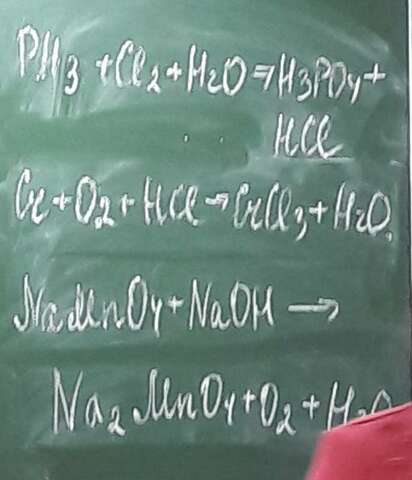 PH3 + Cl2 + H2O → H3PO4 +
HCl
Cr + O2 + HCl → CrCl3 + H2O.
NaMnO4 + NaOH →
Na2MnO4 + O2 + H2O